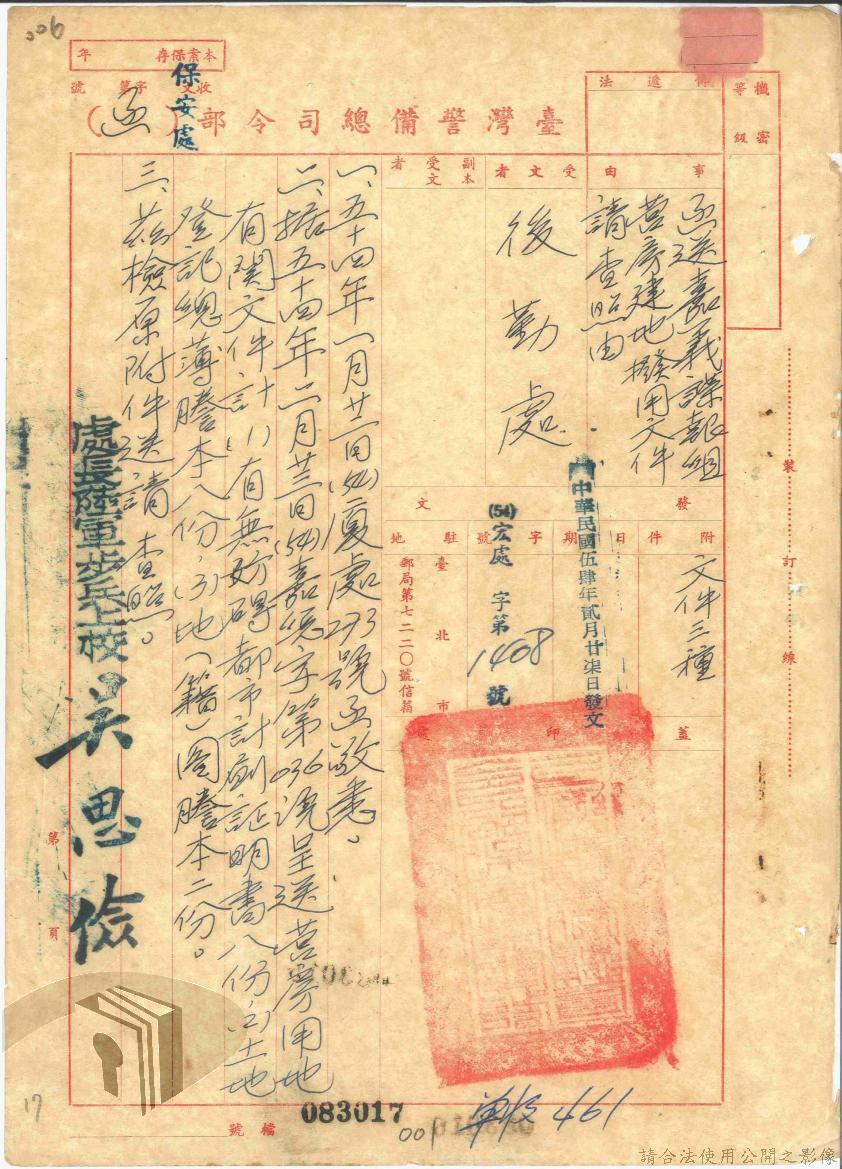 006
本案保存 年
收文 字第 號
保安處
臺灣警備總司令部（函）
機密等級
傳遞法
事由
函送嘉義諜報組
營房建地撥用文件
請查照由
受文者
後勤處
副本受文者
發文
附件
文件三種
日期
中華民國伍肆年貳月廿柒日發文
字號
(54)宏處 字第 1408 號
駐地
臺北市
郵局第七二二〇號信箱
蓋印
一、五十四年一月廿二日(54)處293號函敬悉。
二、據五十四年二月廿三日(54)嘉字第036號呈送營房用地
有關文件計(1)有無妨礙都市計劃証明書八份(2)土地
登記總薄謄本八份，(3)地（籍）圖謄本二份。
三、茲檢原附件送請查照。
處長陸軍步兵上校吳思儉
裝
訂
線
第 頁
17
083017
001
461
檔號
請合法使用公開之影像